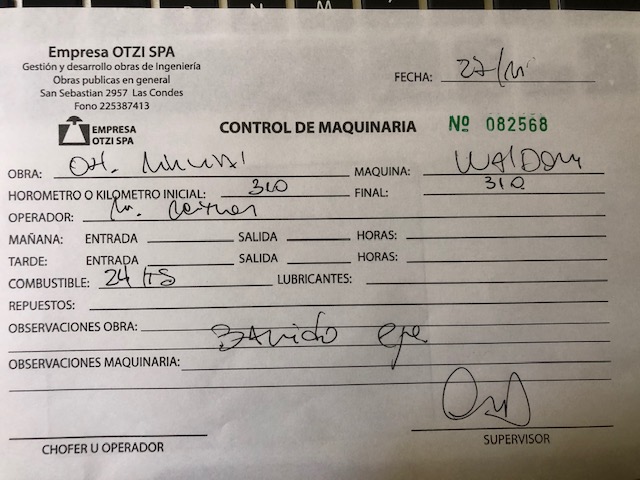 Empresa OTZI SPA
Gestión y desarrollo obras de Ingeniería
Obras publicas en general
San Sebastian 2957 Las Condes
Fono 225387413
FECHA: 27/
EMPRESA OTZI SPA
CONTROL DE MAQUINARIA Nº 082568
OBRA: MAQUINA:
HOROMETRO O KILOMETRO INICIAL: 310 FINAL: 310
OPERADOR:
MAÑANA: ENTRADA SALIDA HORAS:
TARDE: ENTRADA SALIDA HORAS:
COMBUSTIBLE: 24 LTS LUBRICANTES:
REPUESTOS:
OBSERVACIONES OBRA:
OBSERVACIONES MAQUINARIA:
CHOFER U OPERADOR SUPERVISOR